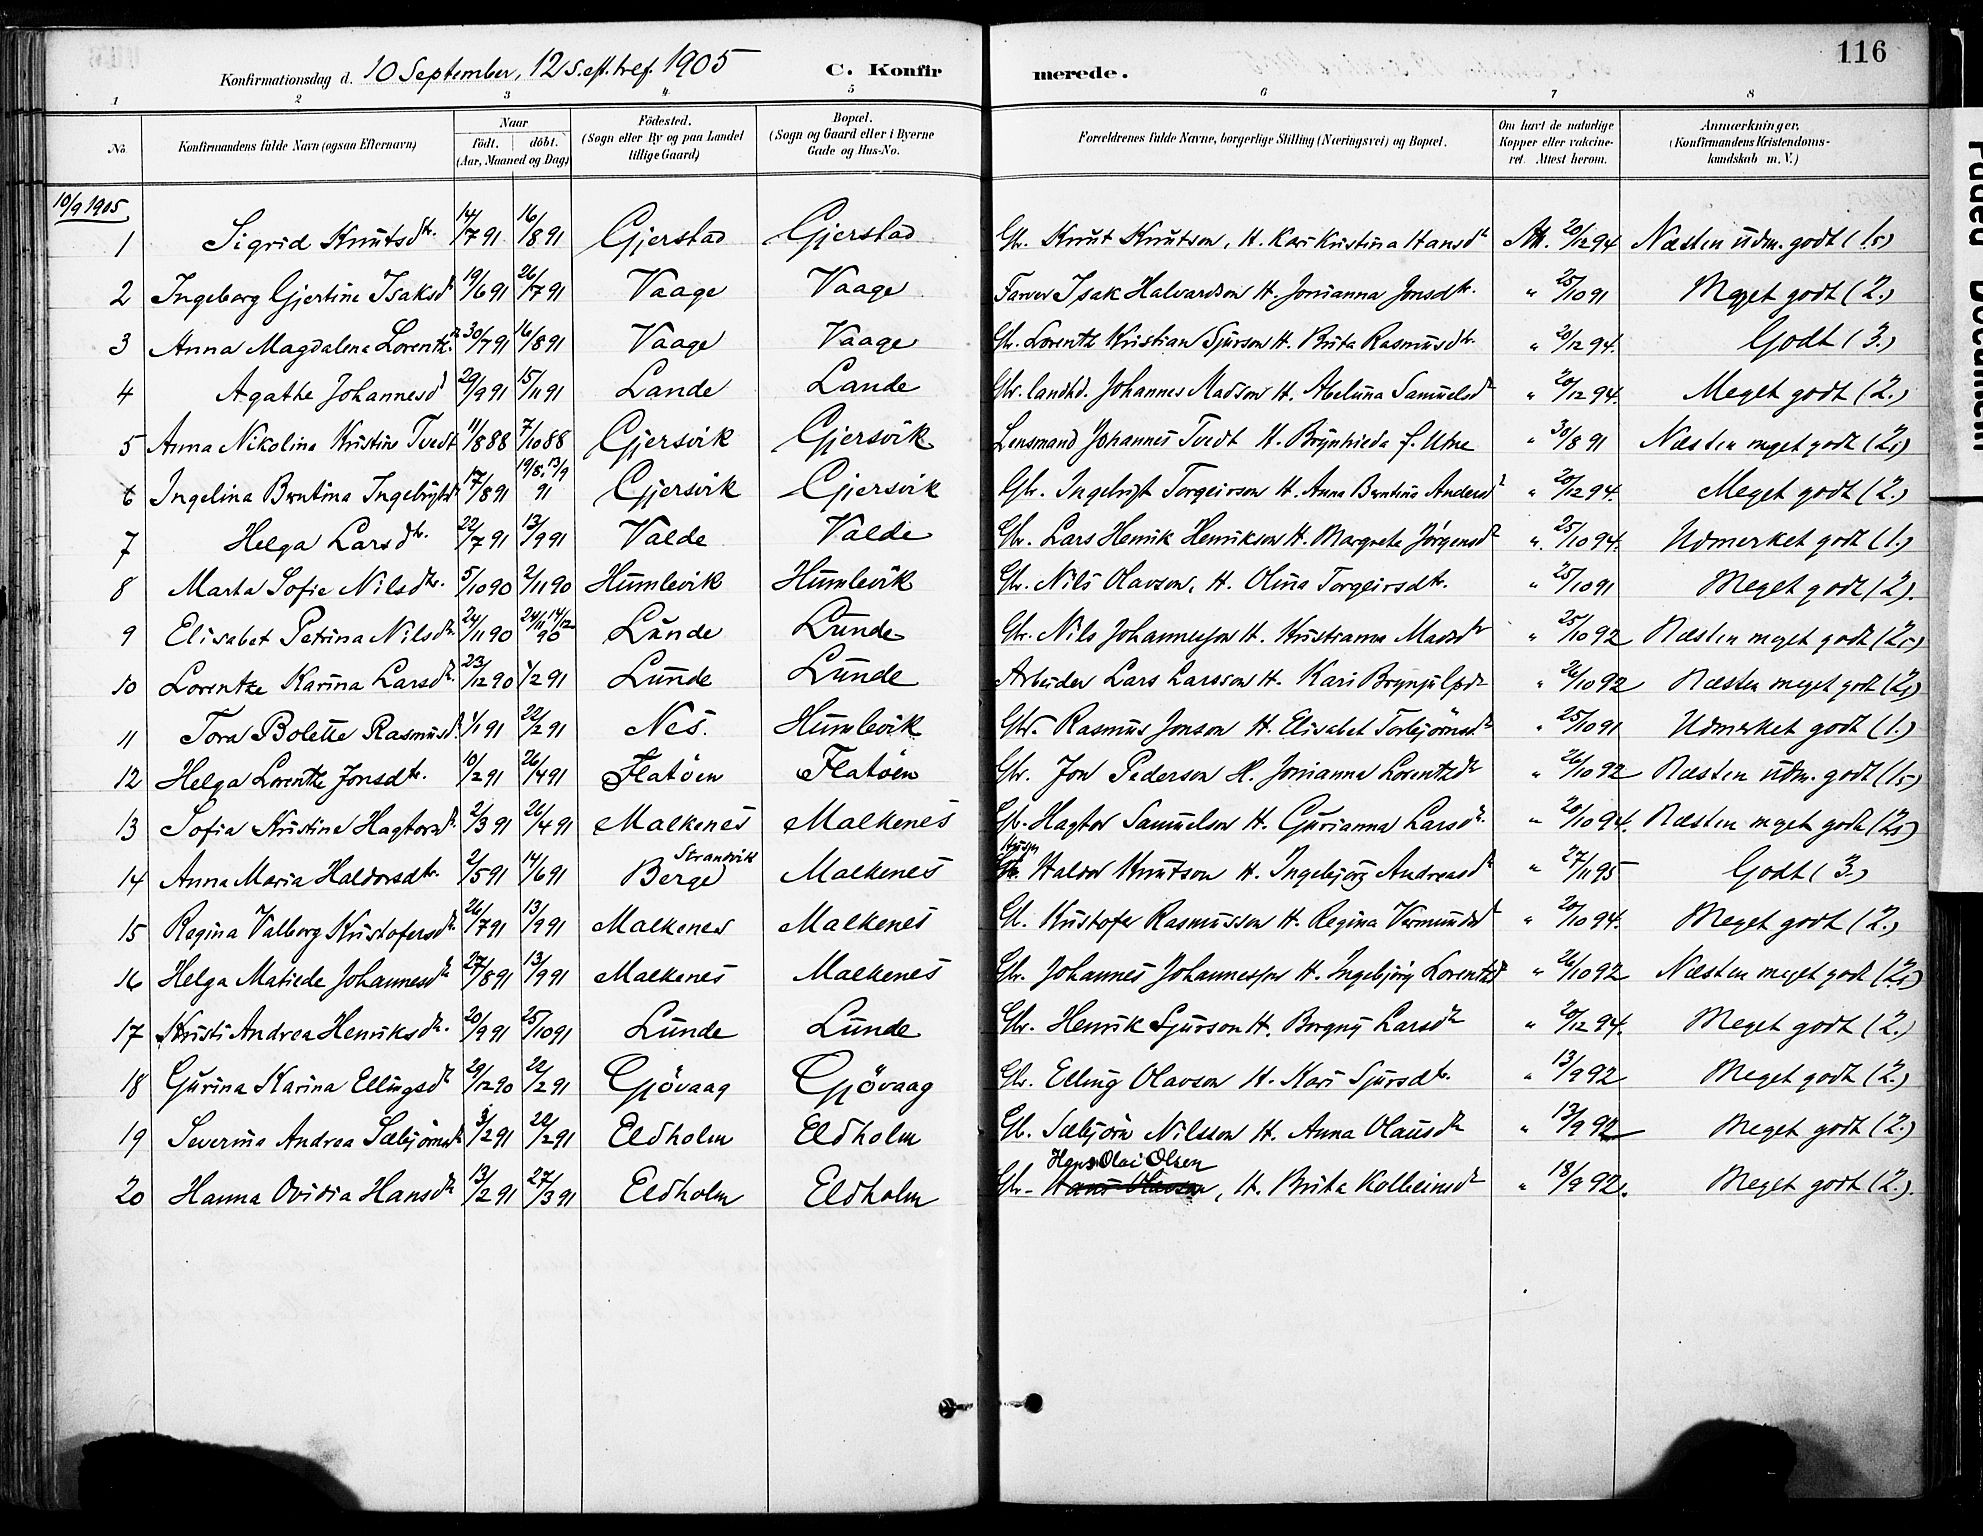 116
Konfirmationsdag d. 10 September, 12 S. eft. tref. 1905 C. Konfirmerede.
1 2 3 4 5 6 7 8
No. Konfirmandens fulde Navn (ogsaa Efternavn) Naar født. døbt. (Aar, Maaned og Dag) Fødested. (Sogn eller By og paa Landet tillige Gaard) Bopæl. (Sogn og Gaard eller i Byerne Gade og Hus-No. Forældrenes fulde Navne, borgerlige Stilling (Næringsvei) og Bopæl. Om havt de naturlige Kopper eller vaccineret. Attest herom. Anmærkninger. (Konfirmandens Kristendomskundskab m. V.)
10/9 1905
1 Sigrid Knutsdtr. 14/7 91 16/8 91 Gjerstad Gjerstad Gbr. Knut Knutson, H. Kari Kristina Hansdr Att. 20/12 94 Næsten udm. godt (1,5)
2 Ingeborg Gjertine Isaksdr 19/6 91 26/7 91 Vaage Vaage Farver Isak Halvardson H. Jonianna Jonsdtr. " 25/10 91 Meget godt (2.)
3 Anna Magdalena Lorentz.dr 30/7 91 16/8 91 Vaage Vaage Gbr. Lorentz Kristian Sjurson H. Brita Rasmusdtr. " 20/12 94. Godt (3.)
4 Agathe Johannesd 29/9 91 15/11 91 Lande Lande Gbr. landhd. Johannes Madson H. Abeluna Samuelsdr " 20/12 94. Meget godt (2.)
5 Anna Nikolina Kristine Tvedt 11/8 88 7/10 88 Gjersvik Gjersvik Lensmand Johannes Tvedt H. Brynhieda f. Utne " 30/8 91 Næsten meget godt (2,5)
6 Ingelina Berntina Ingebrigtsdr 17/8 91 19/8, 13/9 91 Gjersvik Gjersvik Gbr. Ingebrigt Torgeirson H. Anna Berntine Andersdr " 20/12 94. Meget godt (2.)
7 Helga Larsdtr. 22/7 91 13/9 91 Valde Valde Gbr. Lars Henrik Henrikson H. Margreta Jörgensdr " 25/10 94. Udmerket godt (1.)
8 Marta Sofie Nilsdtr. 5/10 90 2/11 90 Humlevik Humlevik Gbr. Nils Olavson, H. Olina Torgeirsdtr. " 25/10 91 Meget godt (2).
9 Elisabet Petrina Nilsdr 24/11 90 24/11 14/12 90 Lunde Lunde Gbr. Nils Johannesson H. Kristianna Madsdr " 25/10 92 Næsten meget godt (2,5)
10 Lorentze Karina Larsdr. 23/12 90 1/2 91 Lunde Lunde Arbeider Lars Larsson H. Kari Brynjulfsdr " 26/10 92 Næsten meget godt (2,5)
11 Tora Bolette Rasmusd. 1/1 91 22/2 91 Nes. Humlevik Gbr. Rasmus Jonson H. Elisabet Torbjörnsdr " 25/10 91 Udmerket godt (1.)
12 Helga Lorentze Jonsdtr. 10/2 91 26/4 91 Flatöen Flatöen Gbr. Jon Pederson H. Jonianna Lorentzdr " 26/10 92 Næsten udm. godt (1,5)
13 Sofia Kristine Hagtorsdr. 2/3 91 26/4 91 Malkenes Malkenes Gbr. Hagtor Samuelson H. Gurianna Larsdr. " 20/10 94. Næsten meget godt (2,5)
14 Anna Maria Haldorsdtr. 2/5 91 14/6 91 Strandvik Berge Malkenes Haldor Knutson H. Ingebjörg Andreasdr " 27/11 95 Godt (3.)
15 Regina Valborg Kristofersdr. 26/7 91 13/9 91 Malkenes Malkenes Gbr. Kristofer Rasmusson H. Regina Vermundsdr " 20/10 94. Meget godt (2.)
16 Helga Matilde Johannesdr 27/8 91 13/9 91 Malkenes Malkenes Gbr. Johannes Johannesson H. Ingebjörg Lorentzdr " 26/10 92 Næsten meget godt (2,5)
17 Kristi Andrea Henriksdtr. 20/9 91 25/10 91 Lunde Lunde Gbr. Henrik Sjurson H. Borgny Larsdr " 20/12 94. Meget godt (2.)
18 Gurina Karina Ellingsdr 29/12 90 22/2 91 Gjövaag Gjövaag Gbr. Elling Olavson H. Kari Sjursdtr. " 13/9 92 Meget godt (2.)
19 Severina Andrea Sæbjörnsdr 3/2 91 22/2 91 Eldholm Eldholm Gbr. Sæbjörn Nilsson H. Anna Olausdr " 13/9 92 Meget godt (2.)
20 Hanna Ovidia Hansdr 13/2 91 27/3 91 Eldholm Eldholm Gbr. Hans Olai Olsen Hans Olavson, H. Brita Kolbeinsdr " 13/9 92. Meget godt (2.).